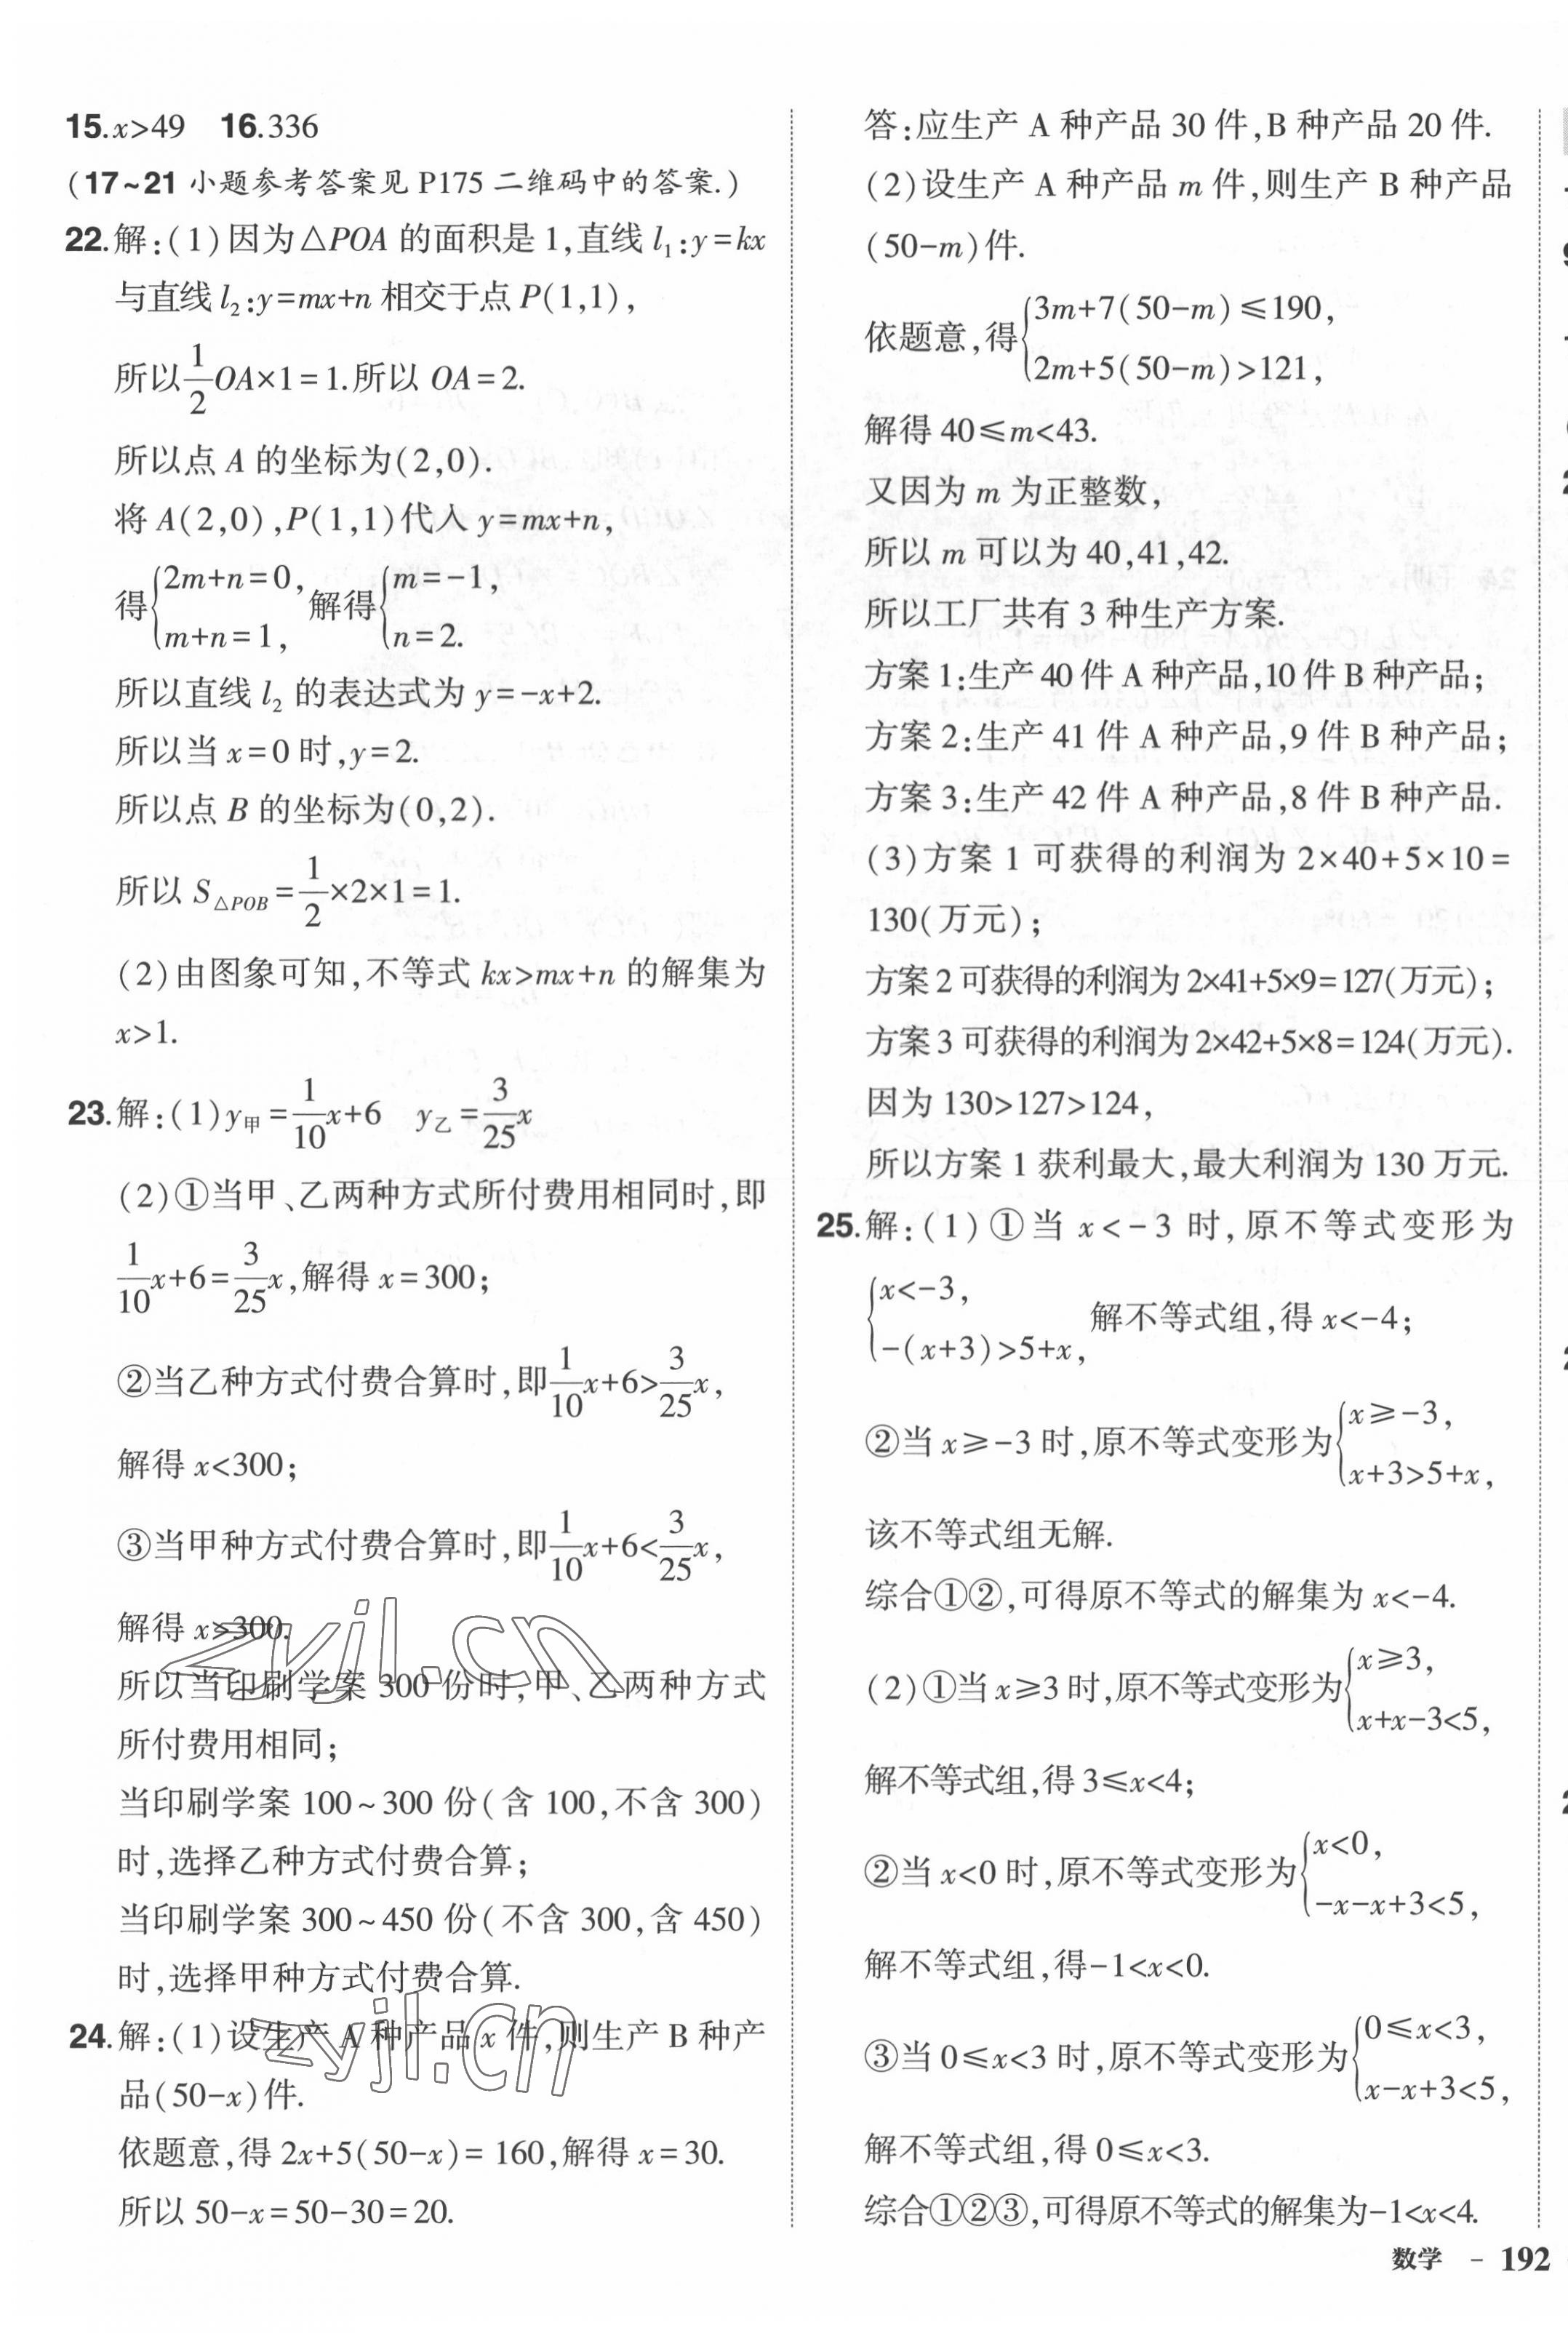 15.x>49　16.336
(17~21 小题参考答案见 P175 二维码中的答案.)
22.解:(1)因为△POA 的面积是 1,直线 l₁:y=kx
与直线 l₂:y=mx+n 相交于点 P(1,1),
所以 1/2 OA×1=1.所以 OA=2.
所以点 A 的坐标为(2,0).
将 A(2,0),P(1,1)代入 y=mx+n,
得{2m+n=0, m+n=1, 解得{m=-1, n=2.
所以直线 l₂ 的表达式为 y=-x+2.
所以当 x=0 时,y=2.
所以点 B 的坐标为(0,2).
所以 S△POB=1/2×2×1=1.
(2)由图象可知,不等式 kx>mx+n 的解集为
x>1.
23.解:(1)y甲=1/10 x+6　y乙=3/25 x
(2)①当甲、乙两种方式所付费用相同时,即
1/10 x+6=3/25 x,解得 x=300;
②当乙种方式付费合算时,即 1/10 x+6>3/25 x,
解得 x<300;
③当甲种方式付费合算时,即 1/10 x+6<3/25 x,
解得 x>300.
所以当印刷学案 300 份时,甲、乙两种方式
所付费用相同;
当印刷学案 100~300 份(含 100,不含 300)
时,选择乙种方式付费合算;
当印刷学案 300~450 份(不含 300,含 450)
时,选择甲种方式付费合算.
24.解:(1)设生产 A 种产品 x 件,则生产 B 种产
品(50-x)件.
依题意,得 2x+5(50-x)=160,解得 x=30.
所以 50-x=50-30=20.
答:应生产 A 种产品 30 件,B 种产品 20 件.
(2)设生产 A 种产品 m 件,则生产 B 种产品
(50-m)件.
依题意,得{3m+7(50-m)≤190, 2m+5(50-m)>121,
解得 40≤m<43.
又因为 m 为正整数,
所以 m 可以为 40,41,42.
所以工厂共有 3 种生产方案.
方案 1:生产 40 件 A 种产品,10 件 B 种产品;
方案 2:生产 41 件 A 种产品,9 件 B 种产品;
方案 3:生产 42 件 A 种产品,8 件 B 种产品.
(3)方案 1 可获得的利润为 2×40+5×10=
130(万元);
方案 2 可获得的利润为 2×41+5×9=127(万元);
方案 3 可获得的利润为 2×42+5×8=124(万元).
因为 130>127>124,
所以方案 1 获利最大,最大利润为 130 万元.
25.解:(1)①当 x<-3 时,原不等式变形为
{x<-3, -(x+3)>5+x, 解不等式组,得 x<-4;
②当 x≥-3 时,原不等式变形为{x≥-3, x+3>5+x,
该不等式组无解.
综合①②,可得原不等式的解集为 x<-4.
(2)①当 x≥3 时,原不等式变形为{x≥3, x+x-3<5,
解不等式组,得 3≤x<4;
②当 x<0 时,原不等式变形为{x<0, -x-x+3<5,
解不等式组,得-1<x<0.
③当 0≤x<3 时,原不等式变形为{0≤x<3, x-x+3<5,
解不等式组,得 0≤x<3.
综合①②③,可得原不等式的解集为-1<x<4.
数学 - 192
zyjl.cn
zyjl.cn